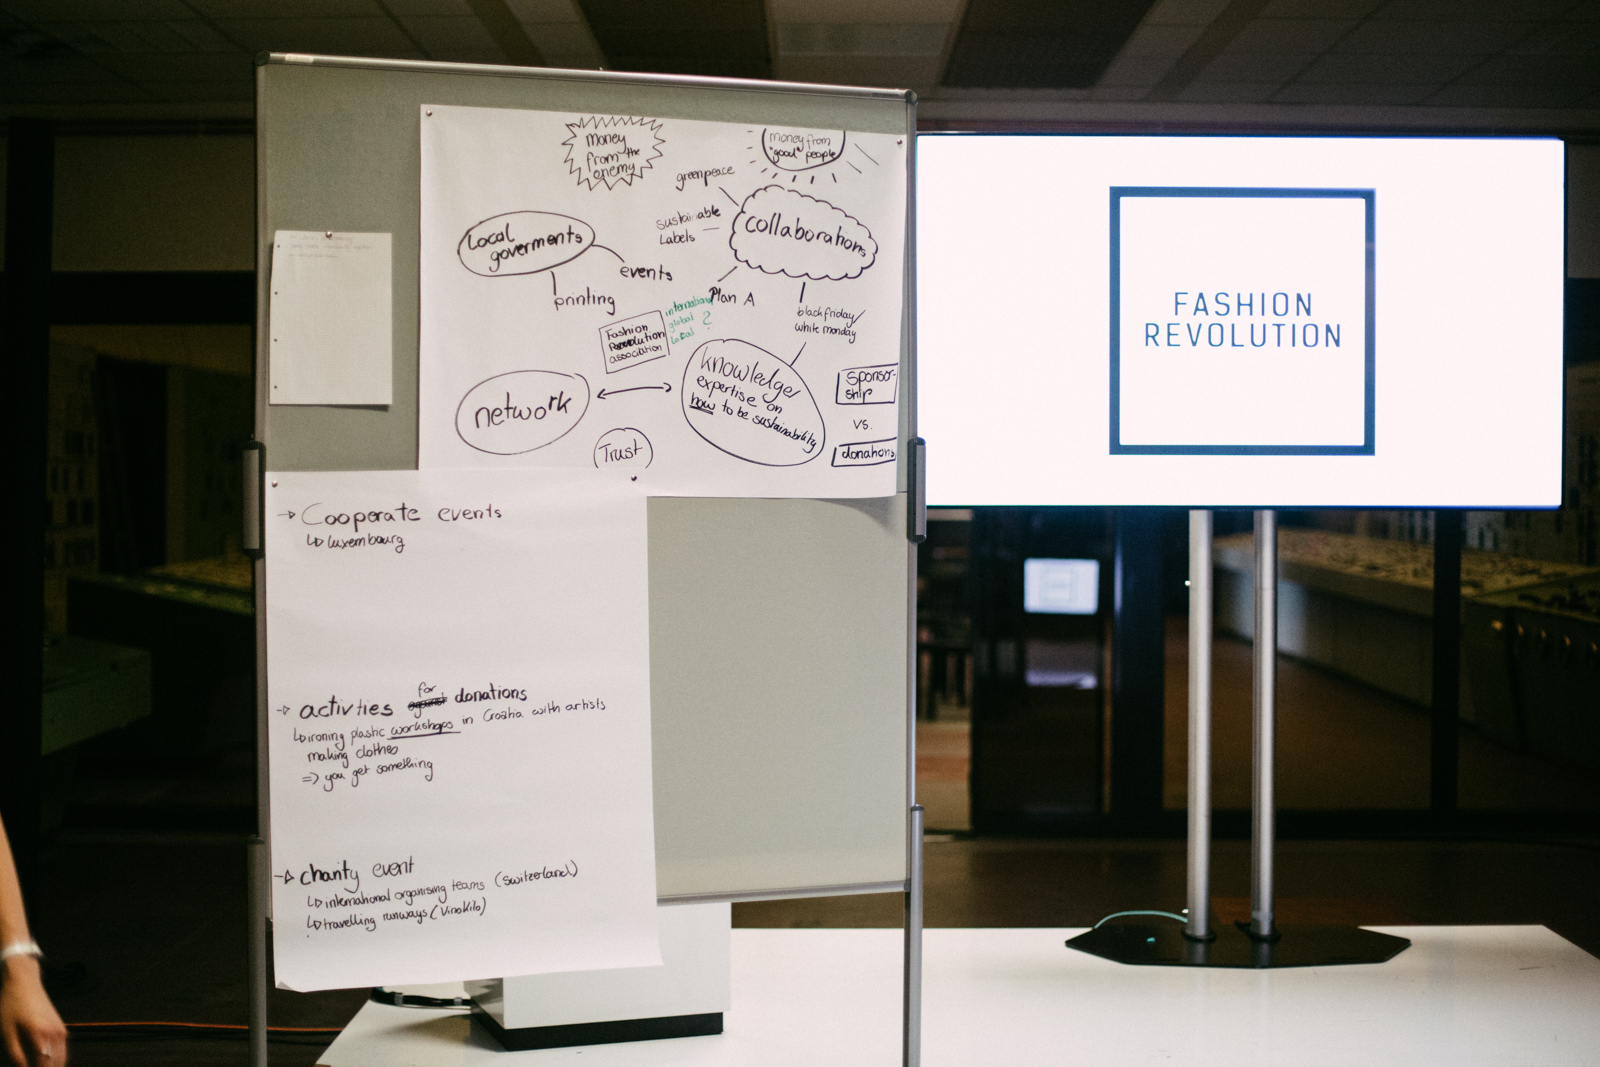 money
from the
enemy
money from
"good" people
greenpeace
sustainable
Labels
collaborations
Local
goverments
events
printing
Plan A
international
global
local
?
blackfriday/
white monday
Fashion
Revolution
association
network
knowledge/
expertise on
how to be sustainability
Sponsor-
ship
vs.
donations
Trust
→ Cooperate events
↳ Luxembourg
→ activties for donations
↳ ironing plastic workshops in Croatia with artists
making clothes
=> you get something
→ charity event
↳ international organising teams (Switzerland)
↳ travelling runways (VinoKilo)
FASHION
REVOLUTION